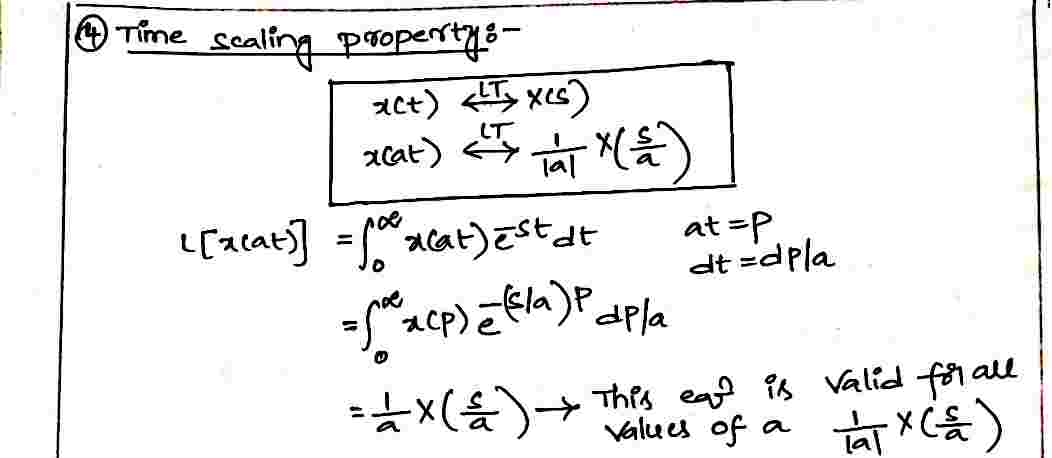 ④ Time scaling property:-
x(t) ⟷LT X(s)
x(at) ⟷LT 1/|a| X(s/a)
L[x(at)] = ∫₀^∞ x(at) e^-st dt at = p
dt = dp/a
= ∫₀^∞ x(p) e^-(s/a)p dp/a
= 1/a X(s/a) → This eqn is valid for all
values of a 1/|a| X(s/a)